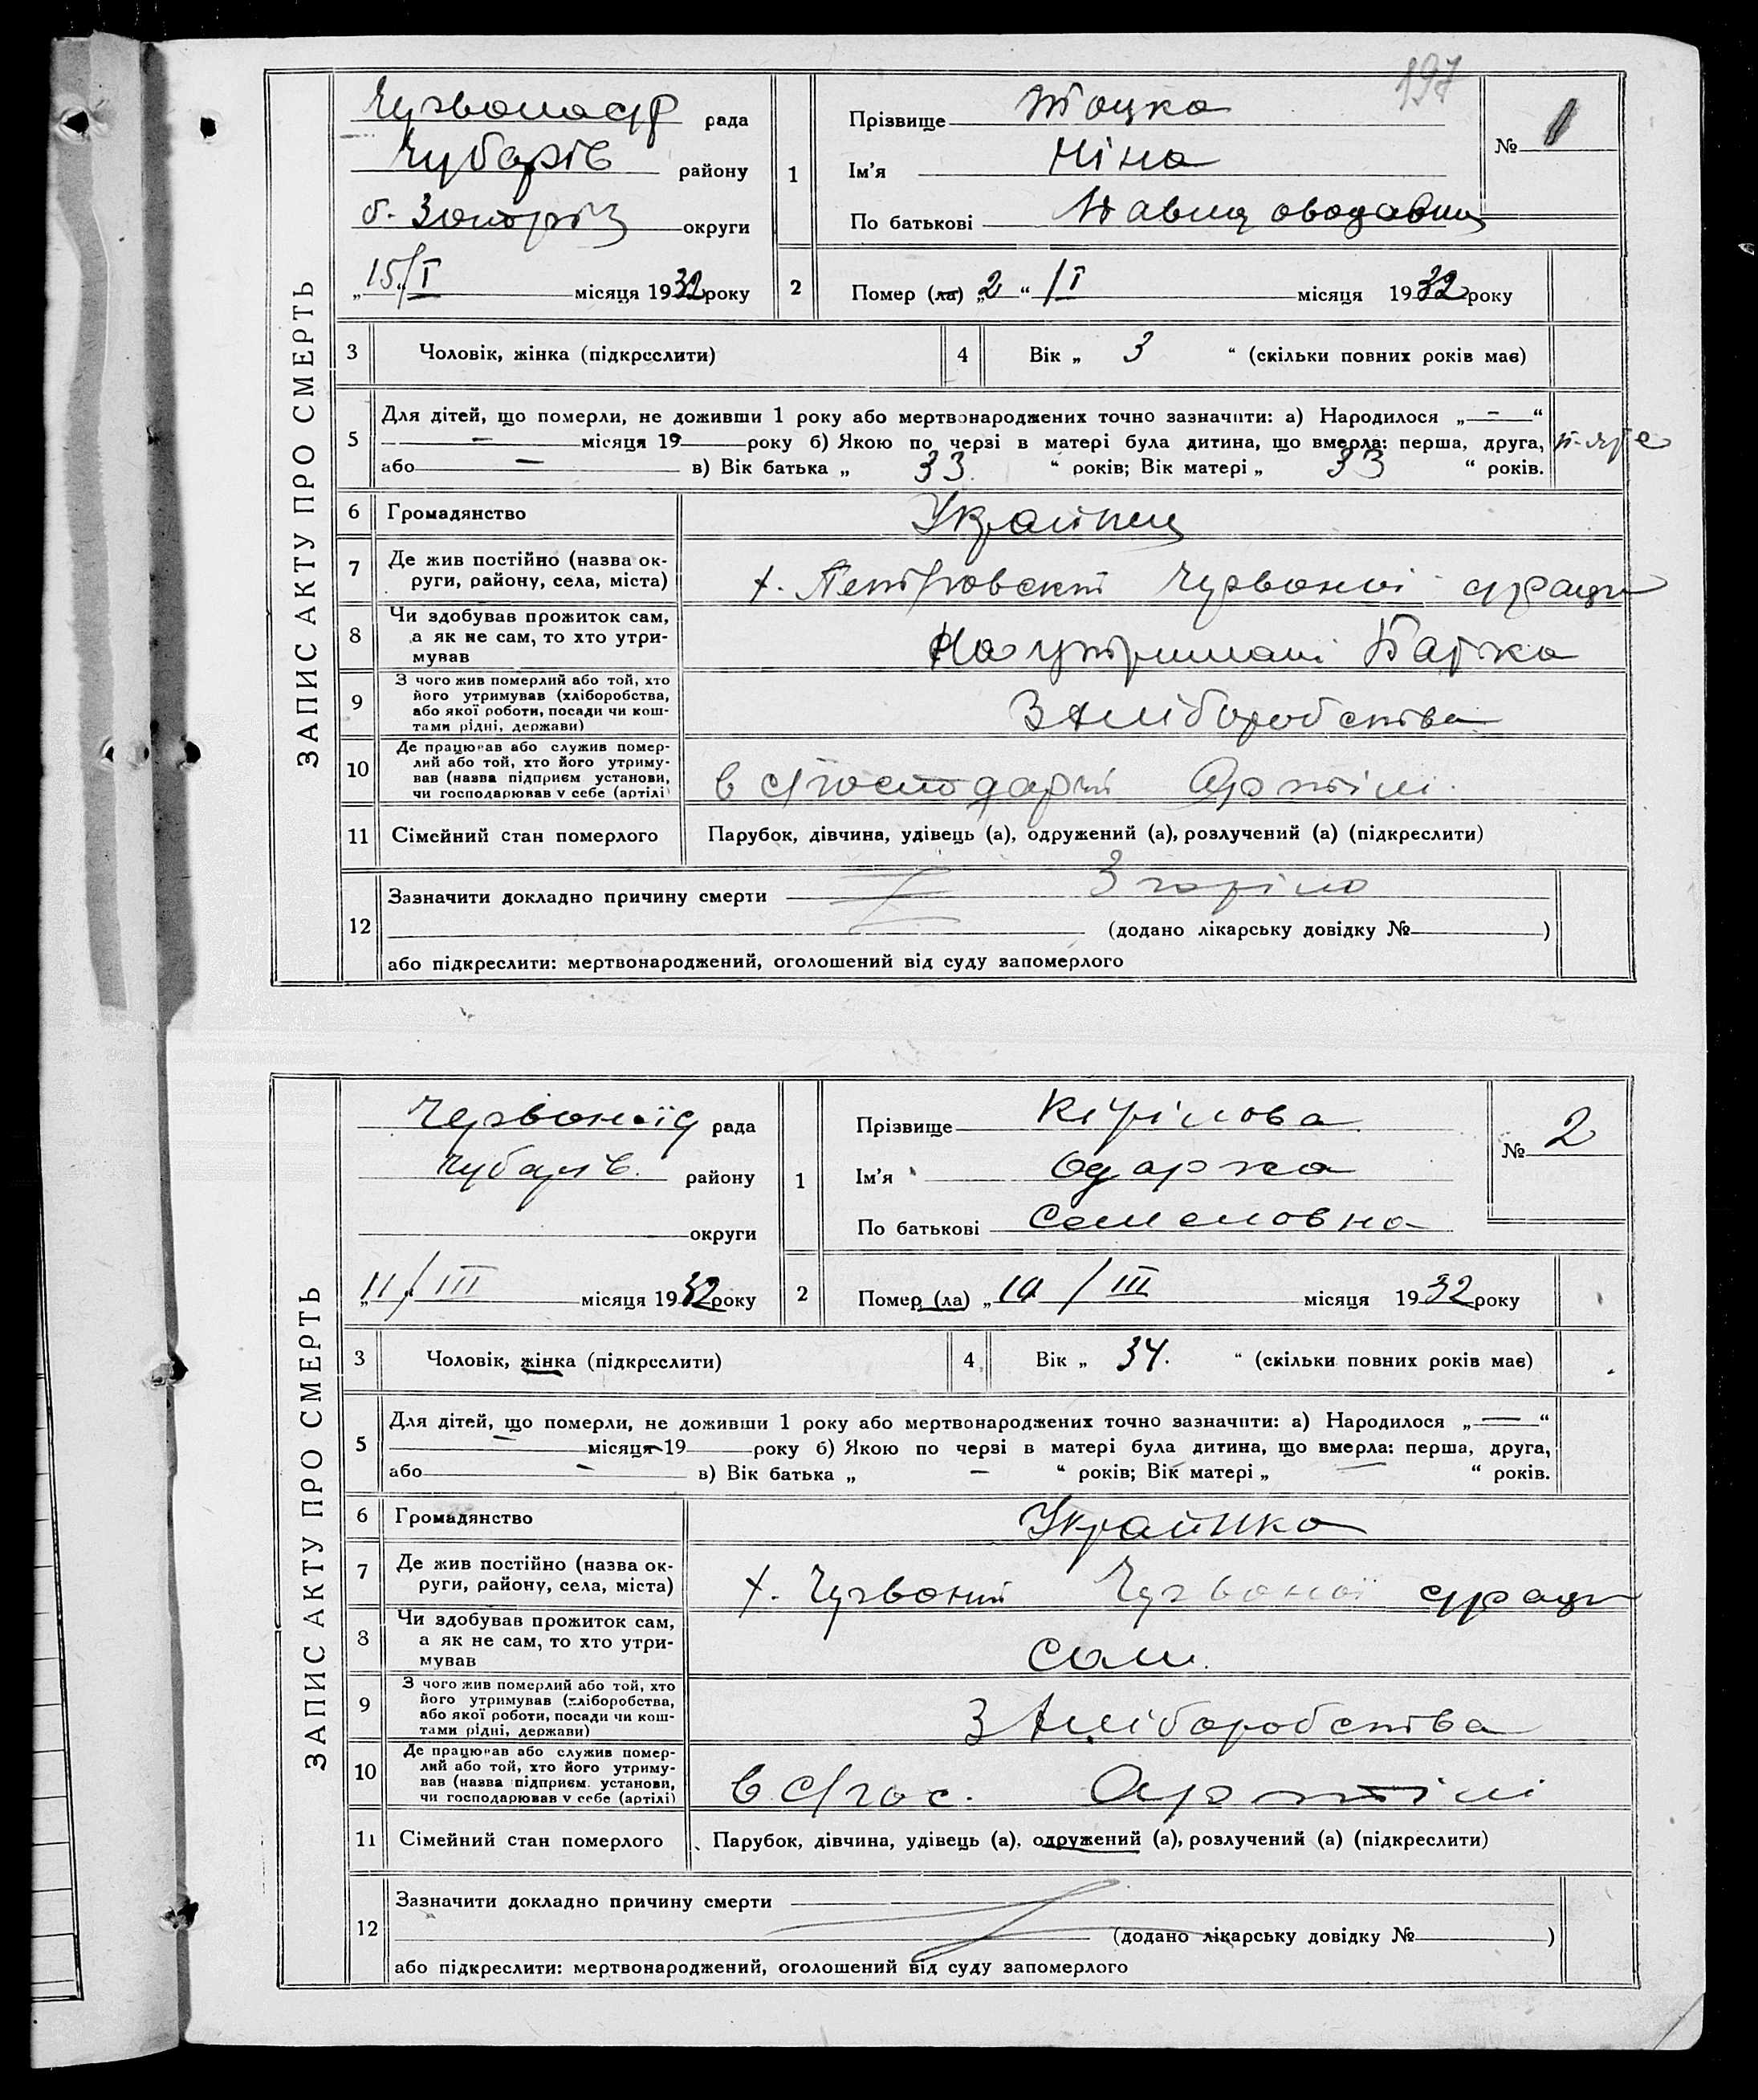 197
ЗАПИС АКТУ ПРО СМЕРТЬ
рада
Чубарів району
б. Запоріз округи
„15“ I місяця 1932 року
1
Прізвище Тоцка
Ім'я Ніна
По батькові
№ 1
2 Помер (ла) „2“ /I місяця 1932 року
3 Чоловік, жінка (підкреслити)
4 Вік „ 3 “ (скільки повних років має)
5 Для дітей, що померли, не доживши 1 року або мертвонароджених точно зазначити: а) Народилося „ — “
— місяця 19 року б) Якою по черзі в матері була дитина, що вмерла: перша, друга,
або — в) Вік батька „ 33 “ років; Вік матері „ 33 “ років.
6 Громадянство
7 Де жив постійно (назва ок-
руги, району, села, міста)
х. Петровский Червоної с/ради
8 Чи здобував прожиток сам,
а як не сам, то хто утри-
мував
На утримані Батька
9 З чого жив померлий або той, хто
його утримував (хліборобства,
або якої роботи, посади чи кош-
тами рідні, держави)
З хліборобства
10 Де працював або служив помер-
лий або той, хто його утриму-
вав (назва підприєм. установи,
чи господарював у себе (артілі)
в с/господарчій Артілі.
11 Сімейний стан померлого
Парубок, дівчина, удівець (а), одружений (а), розлучений (а) (підкреслити)
12 Зазначити докладно причину смерти Згоріла
(додано лікарську довідку № )
або підкреслити: мертвонароджений, оголошений від суду запомерлого
ЗАПИС АКТУ ПРО СМЕРТЬ
рада
Чубарів. району
округи
„11“ / III місяця 1932 року
1
Прізвище Кірілова
Ім'я Одарка
По батькові Семеновна
№ 2
2 Помер (ла) „10 / III місяця 1932 року
3 Чоловік, жінка (підкреслити)
4 Вік „ 34. “ (скільки повних років має)
5 Для дітей, що померли, не доживши 1 року або мертвонароджених точно зазначити: а) Народилося „ — “
— місяця 19 року б) Якою по черзі в матері була дитина, що вмерла: перша, друга,
або — в) Вік батька „ — “ років; Вік матері „ — “ років.
6 Громадянство Українка
7 Де жив постійно (назва ок-
руги, району, села, міста)
х. Червоний Червоної с/ради
8 Чи здобував прожиток сам,
а як не сам, то хто утри-
мував
Сам.
9 З чого жив померлий або той, хто
його утримував (хліборобства,
або якої роботи, посади чи кош-
тами рідні, держави)
З хліборобства
10 Де працював або служив помер-
лий або той, хто його утриму-
вав (назва підприєм. установи,
чи господарював у себе (артілі)
в с/гос. Артілі
11 Сімейний стан померлого
Парубок, дівчина, удівець (а), одружений (а), розлучений (а) (підкреслити)
12 Зазначити докладно причину смерти
(додано лікарську довідку № )
або підкреслити: мертвонароджений, оголошений від суду запомерлого